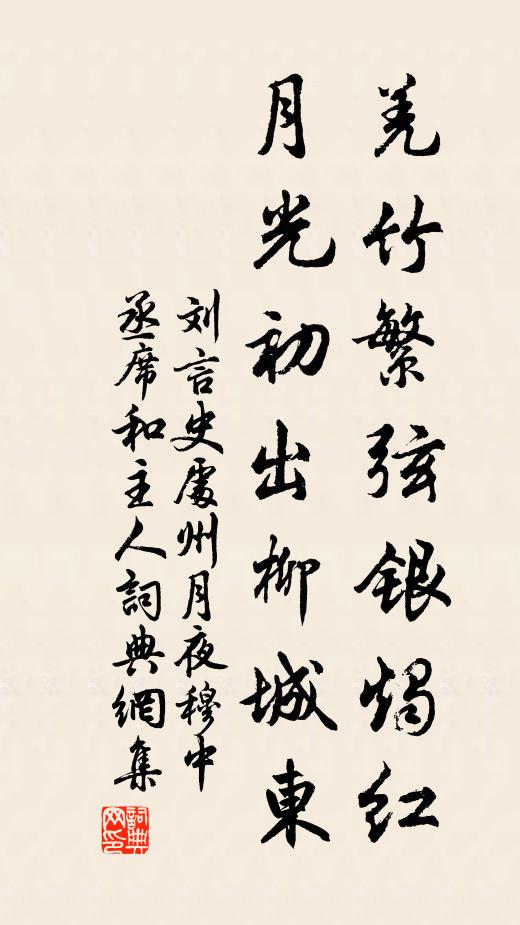 羌竹繁弦銀燭紅
月光初出柳城東
刘言史處州月夜穆中
丞席和主人詞典網集
詞典
网印